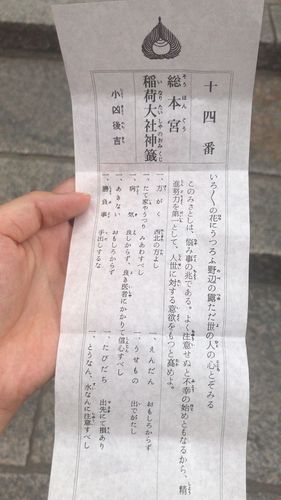 十四番
総本宮
そうほんぐう
稲荷大社神籤
いなりたいしゃのおみくじ
小凶後吉
いろ〳〵の花にうつろふ野辺の露たゞ世の人の心とぞみる
このみさとしは、悩み事の兆である。よく注意せぬと不幸の始めともなるから、精
進努力を第一として、人世に対する意欲をもつと高めよ。
一、方がく 西北の方よし
一、たて家やうつり みあわすべし
一、病気 良しからず、良き医者にかかりて信心すべし
一、あきない おもしろからず
一、勝負事 手出しするな
一、えんだん おもしろからず
一、うせもの 出でがたし
一、たびだち 出先にて損あり
一、とうなん、水なんに注意すべし